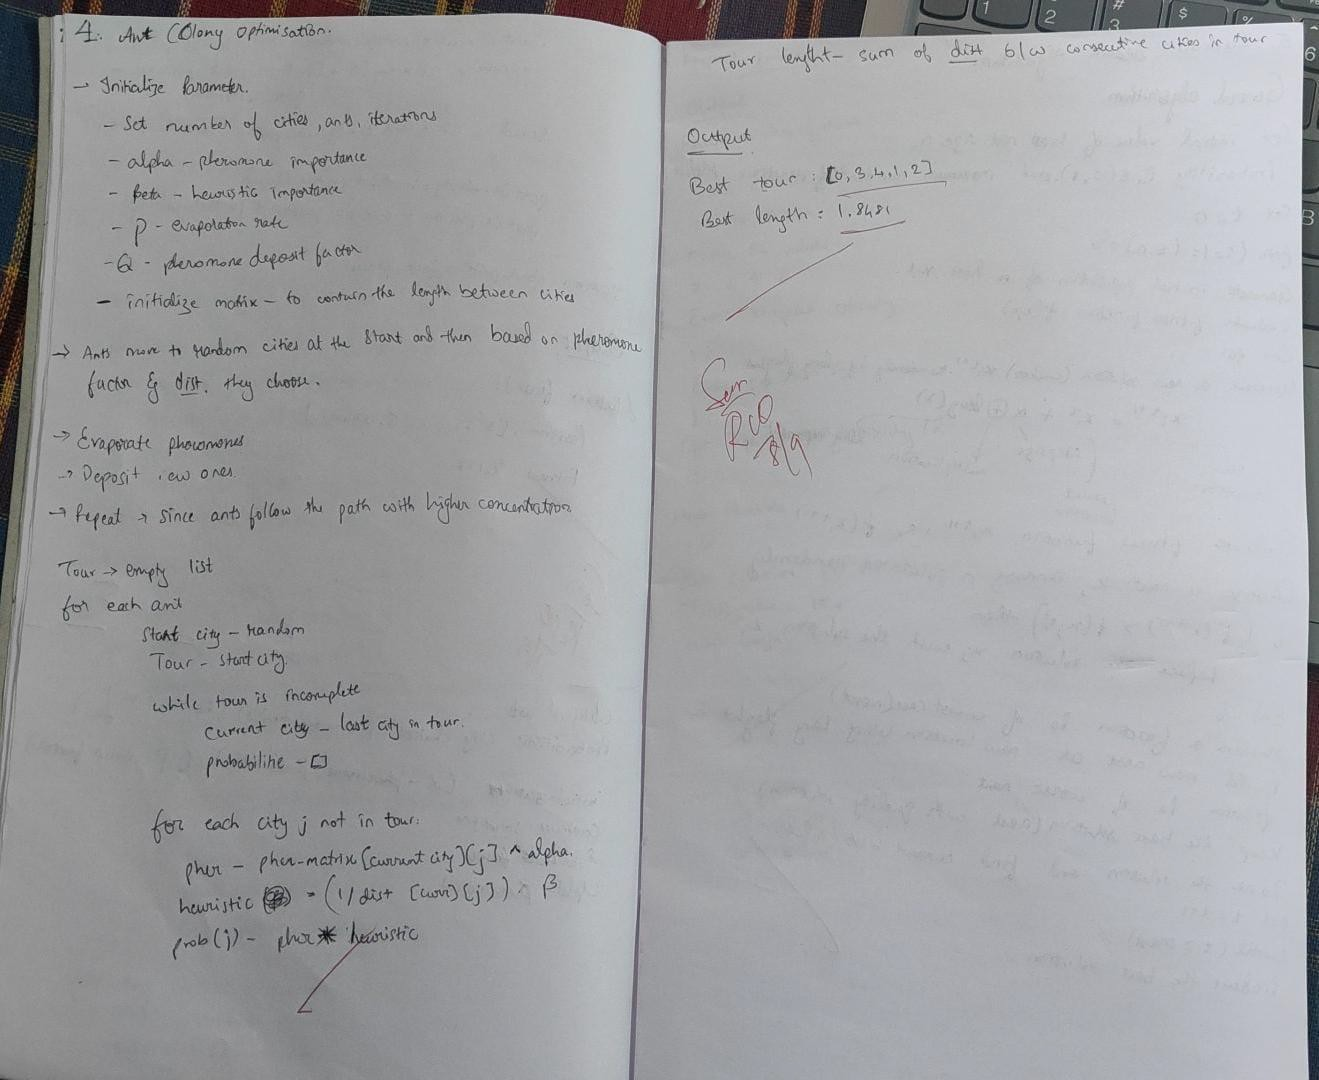 4. Ant Colony Optimisation.
→ Initialize Parameter.
- Set number of cities, ants, iterations
- alpha - pheromone importance
- Beta - heuristic importance
- ρ - evaporation rate
- Q - pheromone deposit factor
- initialize matrix - to contain the length between cities
→ Ants move to random cities at the start and then based on pheromone
factor & dist. they choose.
→ Evaporate pheromones
→ Deposit new ones.
→ Repeat → since ants follow the path with higher concentration
Tour → empty list
for each ant
start city - random
Tour - start city.
while tour is incomplete
current city - last city in tour.
probabilitie - []
for each city j not in tour:
pher - pher-matrix [current city][j] ^ alpha.
heuristic = (1/dist [curr][j]) ^ β
prob(j) - pher * heuristic
Tour lenght - sum of dist b/w consecutive cities in tour
Output
Best tour : [0, 3, 4, 1, 2]
Best length : 1.8481
8/9
1
2
#
3
$
%
6
B